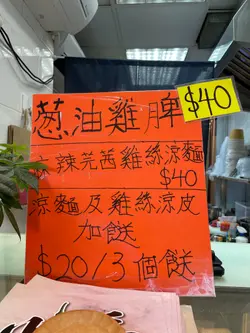 葱油雞脾 $40
辣芫茜雞絲涼麵
$40
涼麵及雞絲涼皮
加餸
$20/3個餸